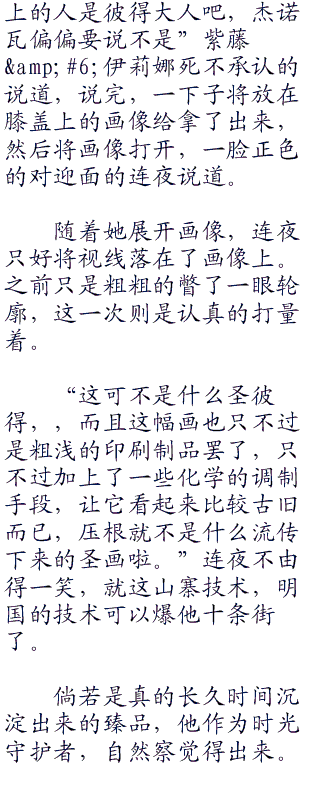 上的人是彼得大人吧，杰诺
瓦偏偏要说不是”紫藤
&amp; #6; 伊莉娜死不承认的
说道，说完，一下子将放在
膝盖上的画像给拿了出来，
然后将画像打开，一脸正色
的对迎面的连夜说道。
随着她展开画像，连夜
只好将视线落在了画像上。
之前只是粗粗的瞥了一眼轮
廓，这一次则是认真的打量
着。
“这可不是什么圣彼
得，，而且这幅画也只不过
是粗浅的印刷制品罢了，只
不过加上了一些化学的调制
手段，让它看起来比较古旧
而已，压根就不是什么流传
下来的圣画啦。”连夜不由
得一笑，就这山寨技术，明
国的技术可以爆他十条街
了。
倘若是真的长久时间沉
淀出来的臻品，他作为时光
守护者，自然察觉得出来。